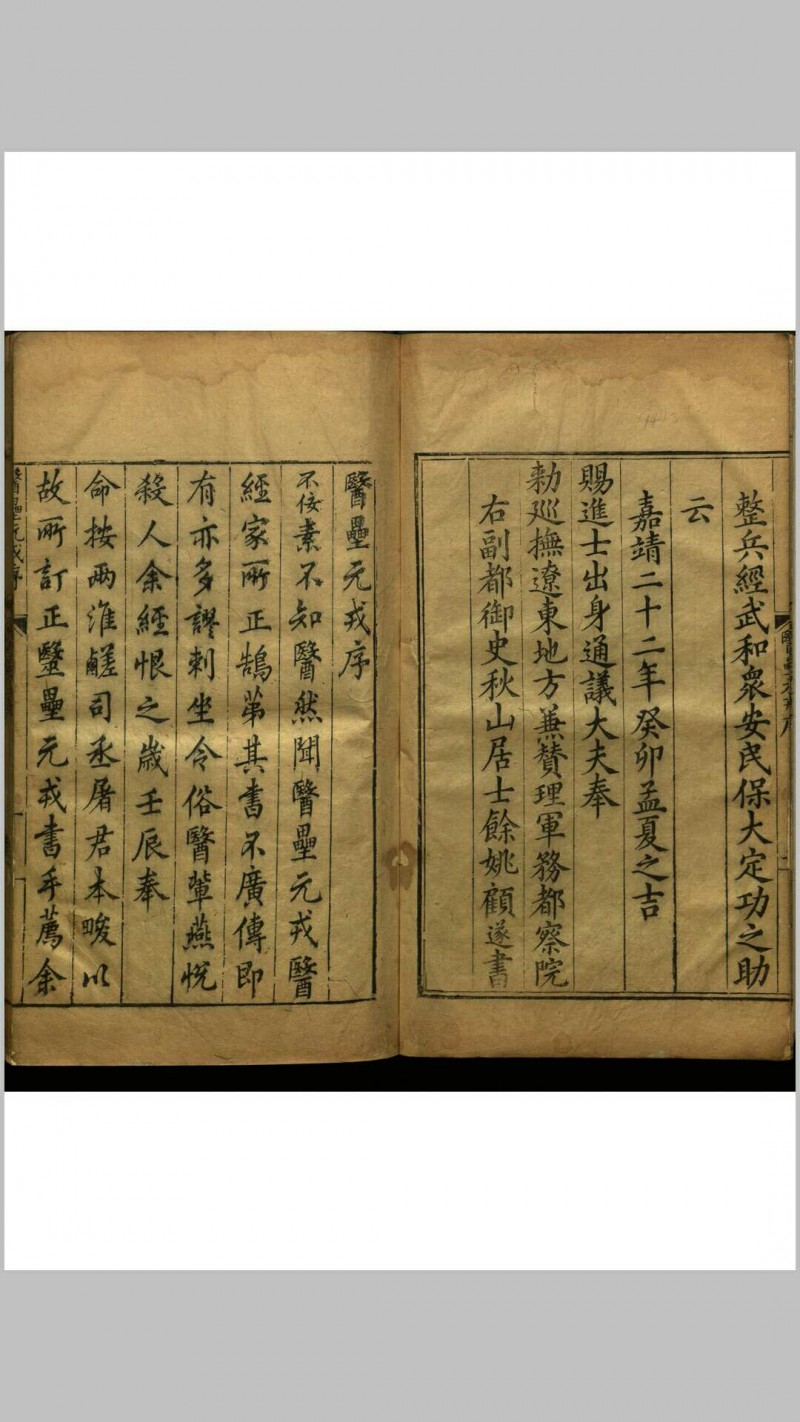 整兵經武和衆安民保大定功之助
云
嘉靖二十二年癸卯孟夏之吉
賜進士出身通議大夫奉
勑巡撫遼東地方兼贊理軍務都察院
右副都御史秋山居士餘姚顧遂書
醫壘元戎序
不佞素不知醫然聞醫壘元戎醫
經家所正鵠第其書不廣傳即
有亦多謬刺坐令俗醫輩燕悅
殺人余經恨之歲壬辰奉
命按兩淮鹺司丞屠君本畯以
故所訂正毉壘元戎書手薦余
醫壘元戎序